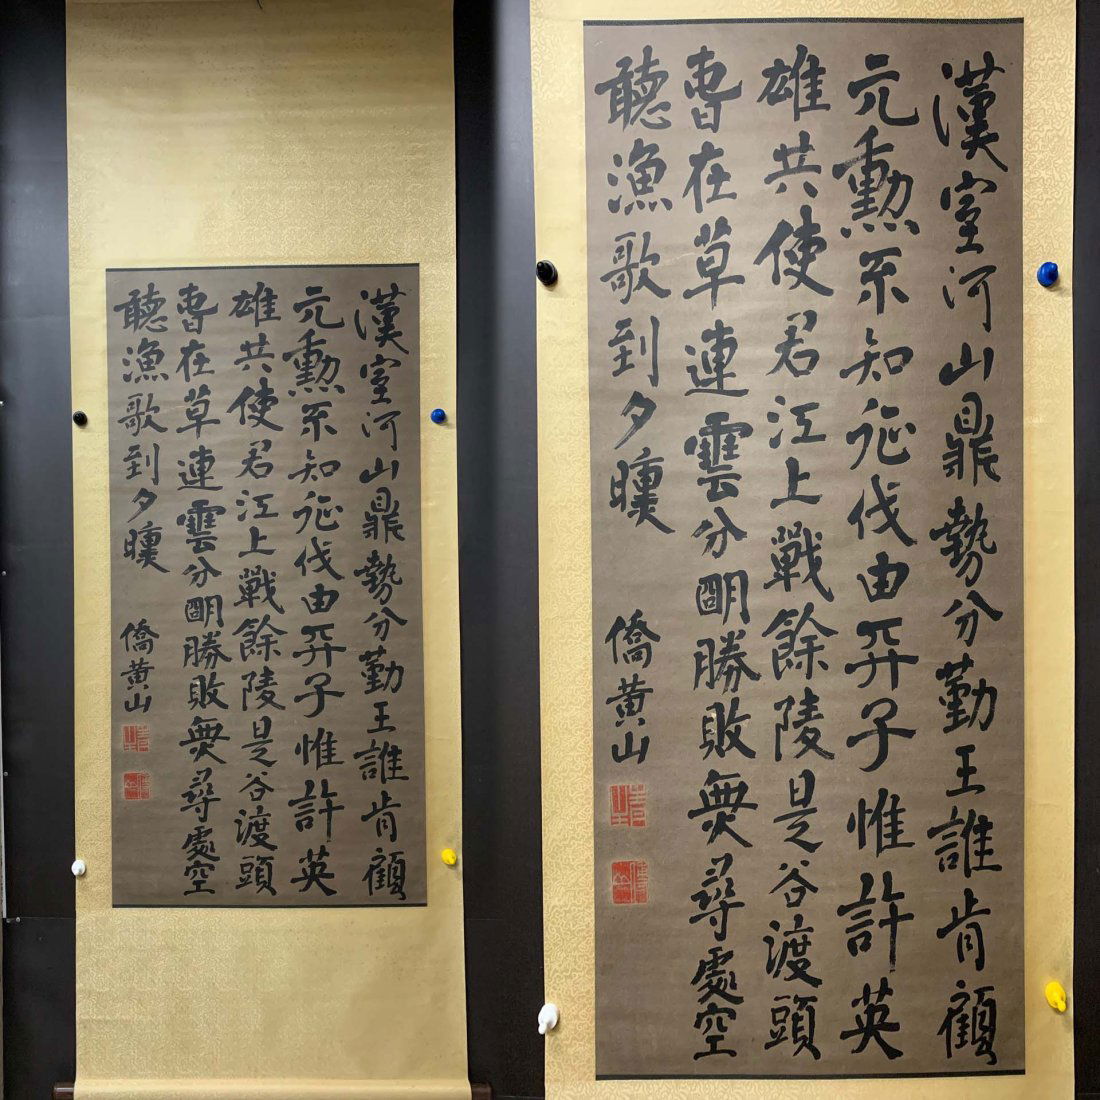 漢室河山鼎勢分勤王誰肯顧
元勳不知征伐由天子惟許英
雄共使君江上戰餘陵是谷渡頭
春在草連雲分明勝敗無尋處空
聽漁歌到夕曛
僑黃山
青主
傅山
漢室河山鼎勢分勤王誰肯顧
元勳不知征伐由天子惟許英
雄共使君江上戰餘陵是谷渡頭
春在草連雲分明勝敗無尋處空
聽漁歌到夕曛
僑黃山
青主
傅山